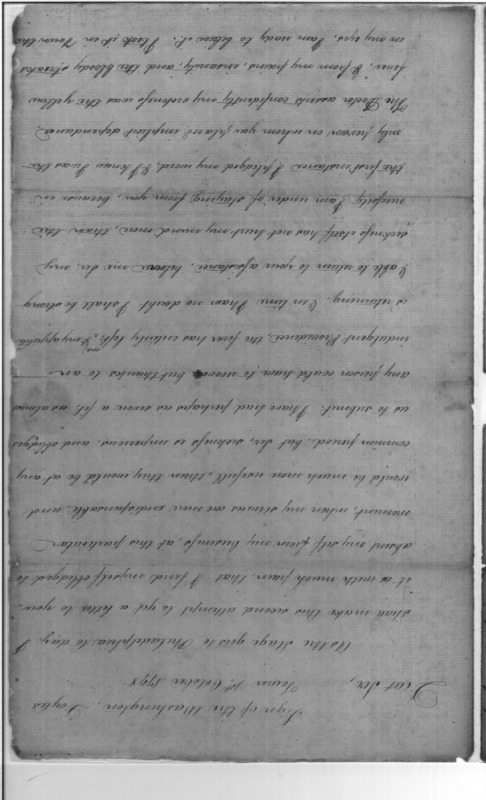 Sign of the Washington, Doyles
Town 1st October 1798
Dear Sir,
As the Stage goes to Philadelphia to day, I
shall make this second attempt to get a letter to you.
it is with much pain, that I find myself obliedged to
absent myself from my business, at this particular
moment, when my services are more indispensable, and
would be much more usefull, than they would be at any
common period, but, Sir, sickness is imperious, and obliedges
us to submit. I have had perhaps as severe a fit, as almost
any person could have, to recover, but thanks to an
indulgent Providence, the fever has intirely left me, & my appetite
is returning, & in time I have no doubt I shall be strong
& able to return to your assistance, believe me Sir, my
sickness itself, has not hurt my mind more, than this
necessity I am under of staying from you, because in
the first instance I pledged my word, & I knew I was the
only person on whom you placed implicit dependance
The Doctor asserts confidently my sickness was the yellow
fever, & from my pains, costiveness, and the bloody streaks
in my eyes, I am ready to believe it. I took it in Town the